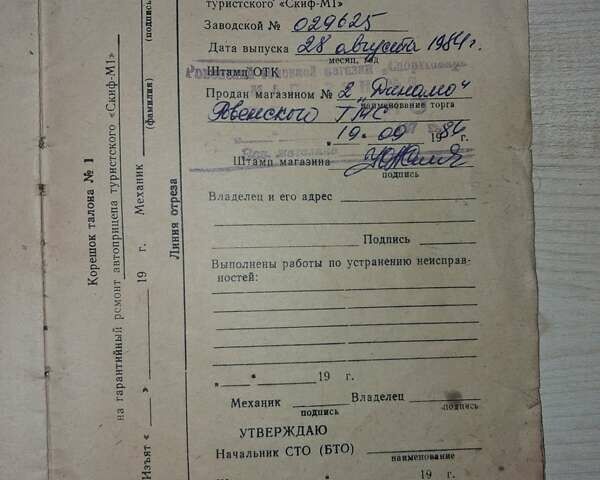 туристского «Скиф-М1»
Заводской № 029625
Дата выпуска 28 августа 1984 г.
месяц, год
Штамп ОТК
Продан магазином № 2 „Динамо“
наименование торга
19.09 1986
Штамп магазина
подпись
Владелец и его адрес
Подпись
Выполнены работы по устранению неисправ-
ностей:
19 г.
Механик Владелец
подпись подпись
УТВЕРЖДАЮ
Начальник СТО (БТО)
наименование
19 г.
Корешок талона № 1
на гарантийный ремонт автоприцепа туристского «Скиф-М1»
Изъят « » 19 г. Механик
(фамилия) (подпись)
Линия отреза